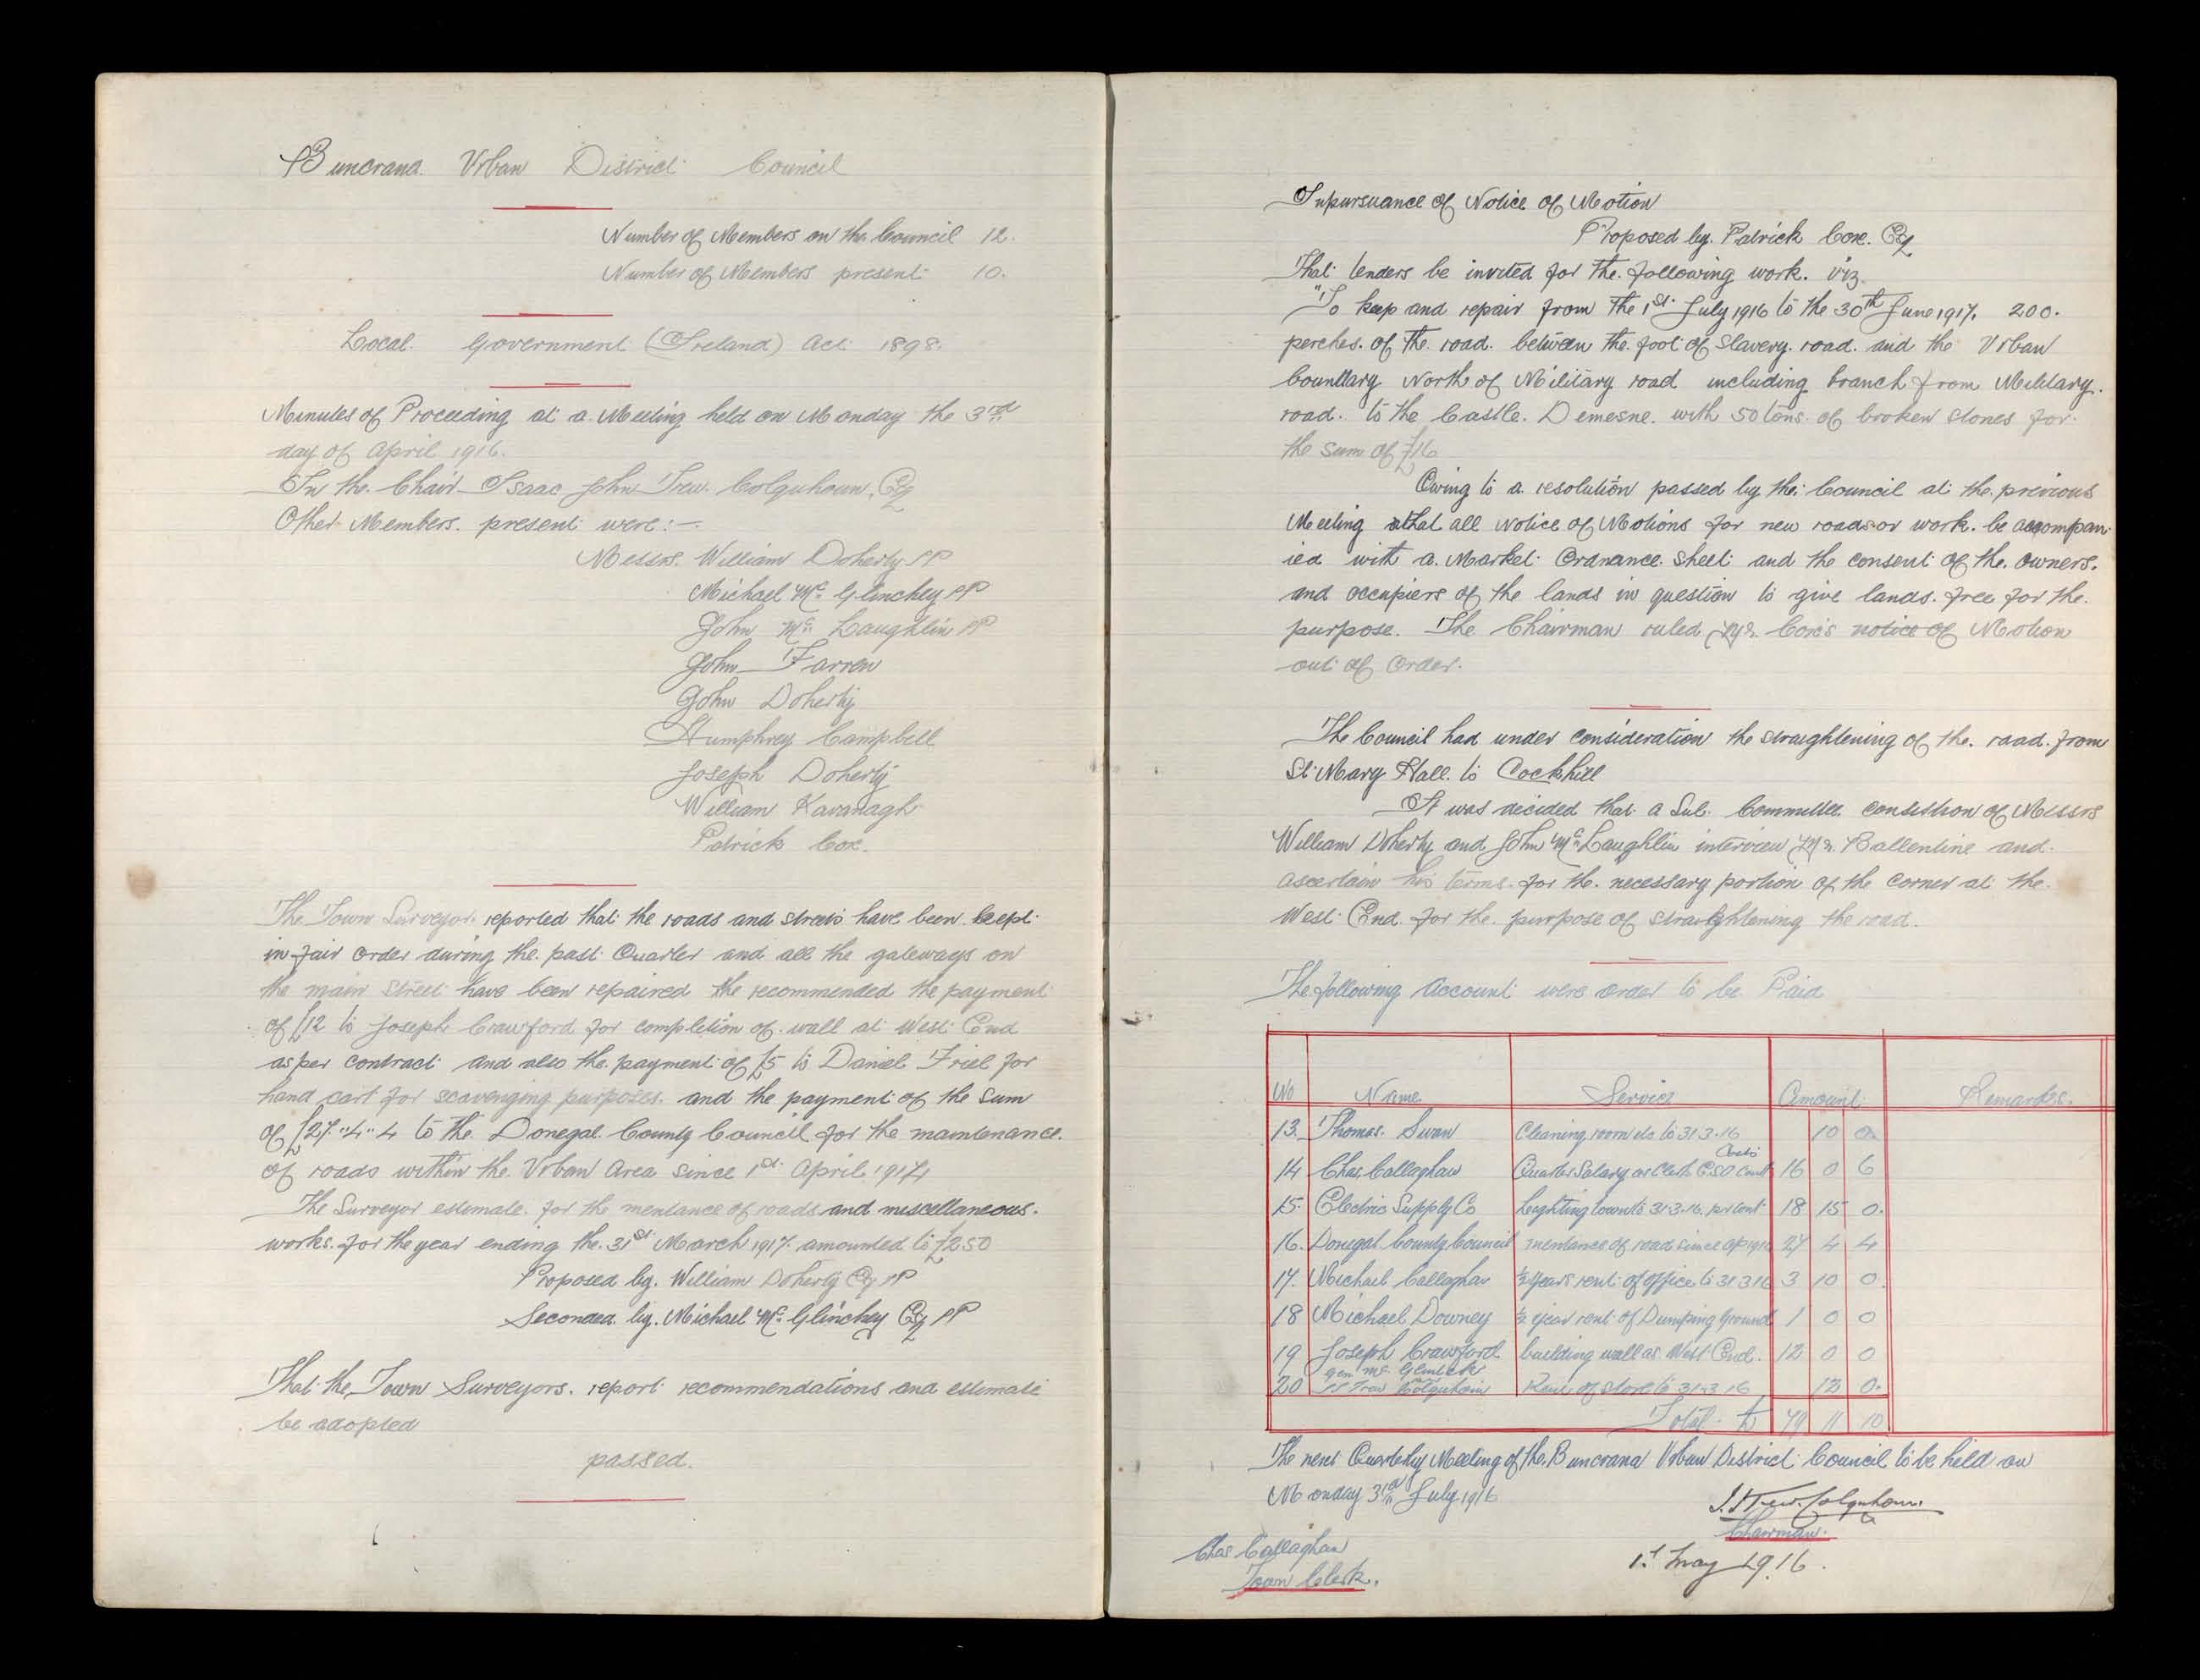 Buncrana Urban District Council
Number of Members on the Council 12.
Number of Members present 10.
Local Government (Ireland) Act 1898.
Minutes of Proceeding at a Meeting held on Monday the 3rd
day of April 1916.
In the Chair Isaac John Trew Colquhoun, Esq
Other Members present were:-
Messrs. William Doherty JP
Michael Mc Glinchey JP
John Mc Laughlin JP
John Farren
John Doherty
Humphrey Campbell
Joseph Doherty
William Kavanagh
Patrick Cox.
The Town Surveyor reported that the roads and streets have been kept
in fair order during the past Quarter and all the gateways on
the main street have been repaired the recommended the payment
of £12 to Joseph Crawford for completion of wall at West End
as per contract and also the payment of £5 to Daniel Friel for
hand cart for scavenging purposes. and the payment of the sum
of £27"4"4 to the Donegal County Council for the maintenance.
of roads within the Urban Area since 1st April 1914
The Surveyor estimate for the mentance of roads and miscellaneous.
works. for the year ending the 31st March 1917 amounted to £250
Proposed by. William Doherty Esq JP
Seconded by. Michael Mc Glinchey Esq JP
That the Town Surveyors. report recommendations and estimate
be adopted
passed.
Inpursuance of Notice of Motion
Proposed by. Patrick Cox. Esq
That tenders be invited for the following work. viz
"To keep and repair from the 1st July 1916 to the 30th June 1917. 200.
perches of the road between the foot of Slavery road and the Urban
bounttary North of Military road including branch from Military.
road. to the Castle. Demesne. with 50 tons of broken stones for
the sum of £16
Owing to a resolution passed by the Council at the previous
Meeting that all Notice of Motions for new roads or work. be accompan
ied with a Market Ordnance Sheet and the consent of the owners.
and occupiers of the lands in question to give lands. free for the.
purpose. The Chairman ruled Mr. Cox's notice of Motion
out of order.
The Council had under consideration the straightening of the road from
St Mary Hall. to Cockhill
It was decided that a Sub. Committee consistion of Messrs
William Doherty and John Mc Laughlin interview Mr. Ballentine and
ascertain his terms for the necessary portion of the corner at the
West End for the purpose of straightening the road.
The following Account were order to be Paid
No Name Service Amount Remarks.
13. Thomas. Swan Cleaning room etc to 31.3.16 10 0
14 Chas. Callaghan Quarter Salary as Clerk 16 0 6
15. Electric Supply Co Lighting town to 31.3.16. 18 15 0.
16. Donegal County Council mentance of road since 27 4 4
17. Michael Callaghan ½ Years rent of office to 31 3 16 3 10 0.
18 Michael Downey ½ year rent of Dumping Ground 1 0 0
19 Joseph Crawford building wall as West End. 12 0 0
20 Trew Colquhoun Rent of store to 31.3.16 12 0.
Total £ 79 11 10
The next Quarterly Meeting of the Buncrana Urban District Council to be held on
Monday 3rd July 1916
I. J Trew. Colquhoun
Chairman.
Chas Callaghan
Town Clerk.
1st May 1916.